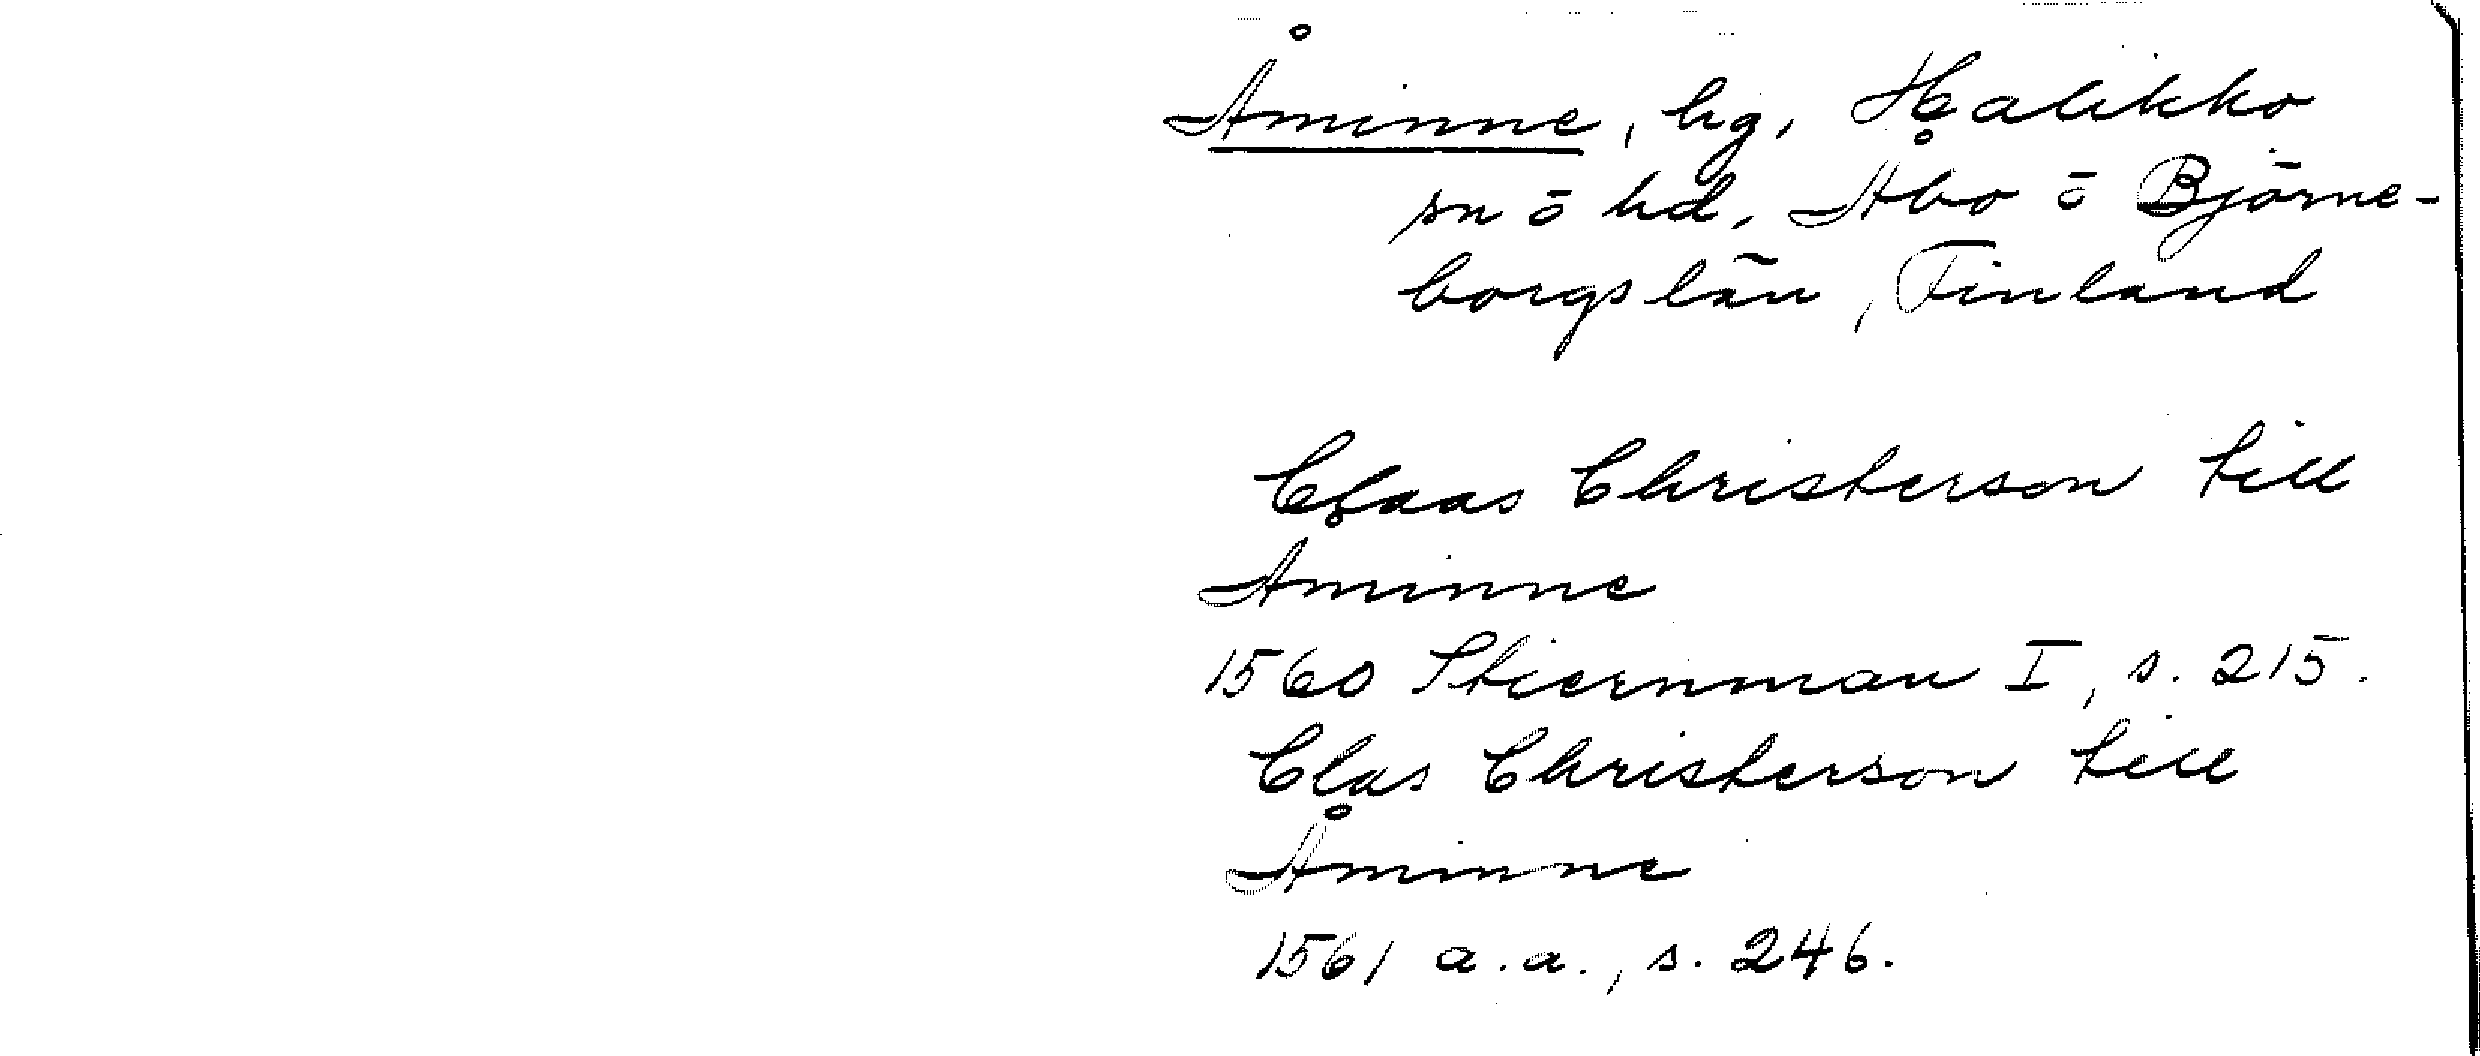 Åminne, hg, Halikko
sn ō hd, Åbo ō Björne-
borgs län, Finland
Claas Christerson till
Aminne
1560 Stiernman I, s. 215.
Clas Christerson till
Åminne
1561 a.a., s. 246.